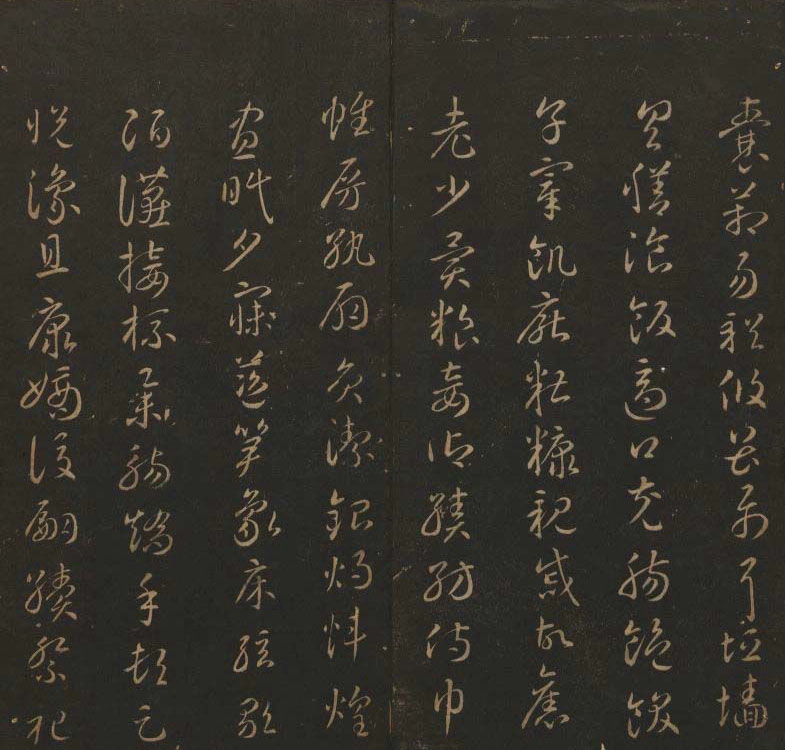 囊箱易輶攸畏屬耳垣墻
具膳飡飯適口充腸飽飫
享宰飢厭糟糠親戚故舊
老少異糧妾御績紡侍巾
帷房紈扇圓潔銀燭煒煌
晝眠夕寐藍筍象床弦歌
酒讌接杯舉觴矯手頓足
悅豫且康嫡後嗣續祭祀